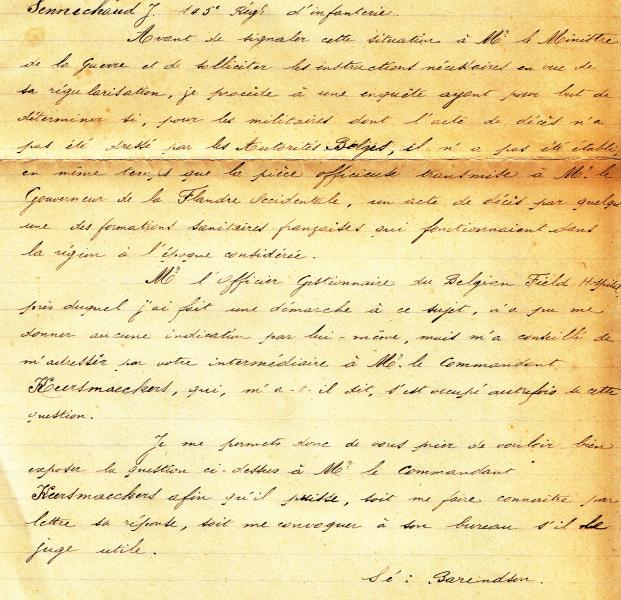 Sennechaud J. 105e Régt d'infanterie.
Avant de signaler cette situation à Mr le Ministre
de la Guerre et de solliciter les instructions nécessaires en vue de
sa régularisation, je procède à une enquête ayant pour but de
déterminer si, pour les militaires dont l'acte de décès n'a
pas été dressé par les Autorités Belges, il n'a pas été établi
en même temps que la pièce officieuse transmise à Mr le
Gouverneur de la Flandre Occidentale, un acte de décès par quelqu
une des formations sanitaires françaises qui fonctionnaient dans
la région à l'époque considérée.
Mr l'Officier Gestionnaire du Belgian Field Hospital,
près duquel j'ai fait une démarche à ce sujet, n'a pu me
donner aucune indication par lui-même, mais m'a conseillé de
m'adresser par votre intermédiaire à Mr le Commandant
Keersmaeckers, qui, m'a-t-il dit, s'est occupé autrefois de cette
question.
Je me permets donc de vous prier de vouloir bien
exposer la question ci-dessus à Mr le Commandant
Keersmaeckers afin qu'il puisse, soit me faire connaître par
lettre sa réponse, soit me convoquer à son bureau s'il le
juge utile.
Sé : Barendson.